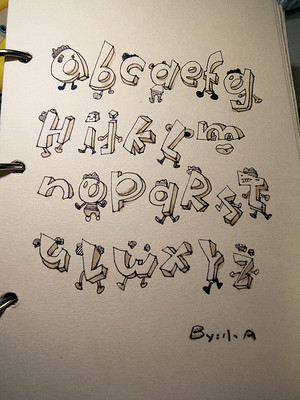 abcdefg
Hijklm
nopqRst
uvwxyz
By:小A